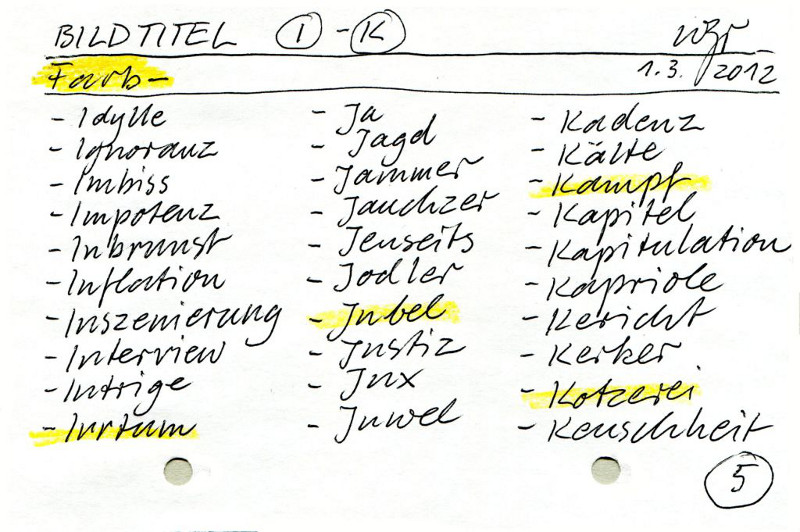 BILDTITEL I - K
Farb-
1.3. 2012
- Idylle
- Ignoranz
- Imbiss
- Impotenz
- Inbrunst
- Inflation
- Inszenierung
- Interview
- Intrige
- Irrtum
- Ja
- Jagd
- Jammer
- Jauchzer
- Jenseits
- Jodler
- Jubel
- Justiz
- Jux
- Juwel
- Kadenz
- Kälte
- Kampf
- Kapitel
- Kapitulation
- Kapriole
- Kericht
- Kerker
- Kotzerei
- Keuschheit
5